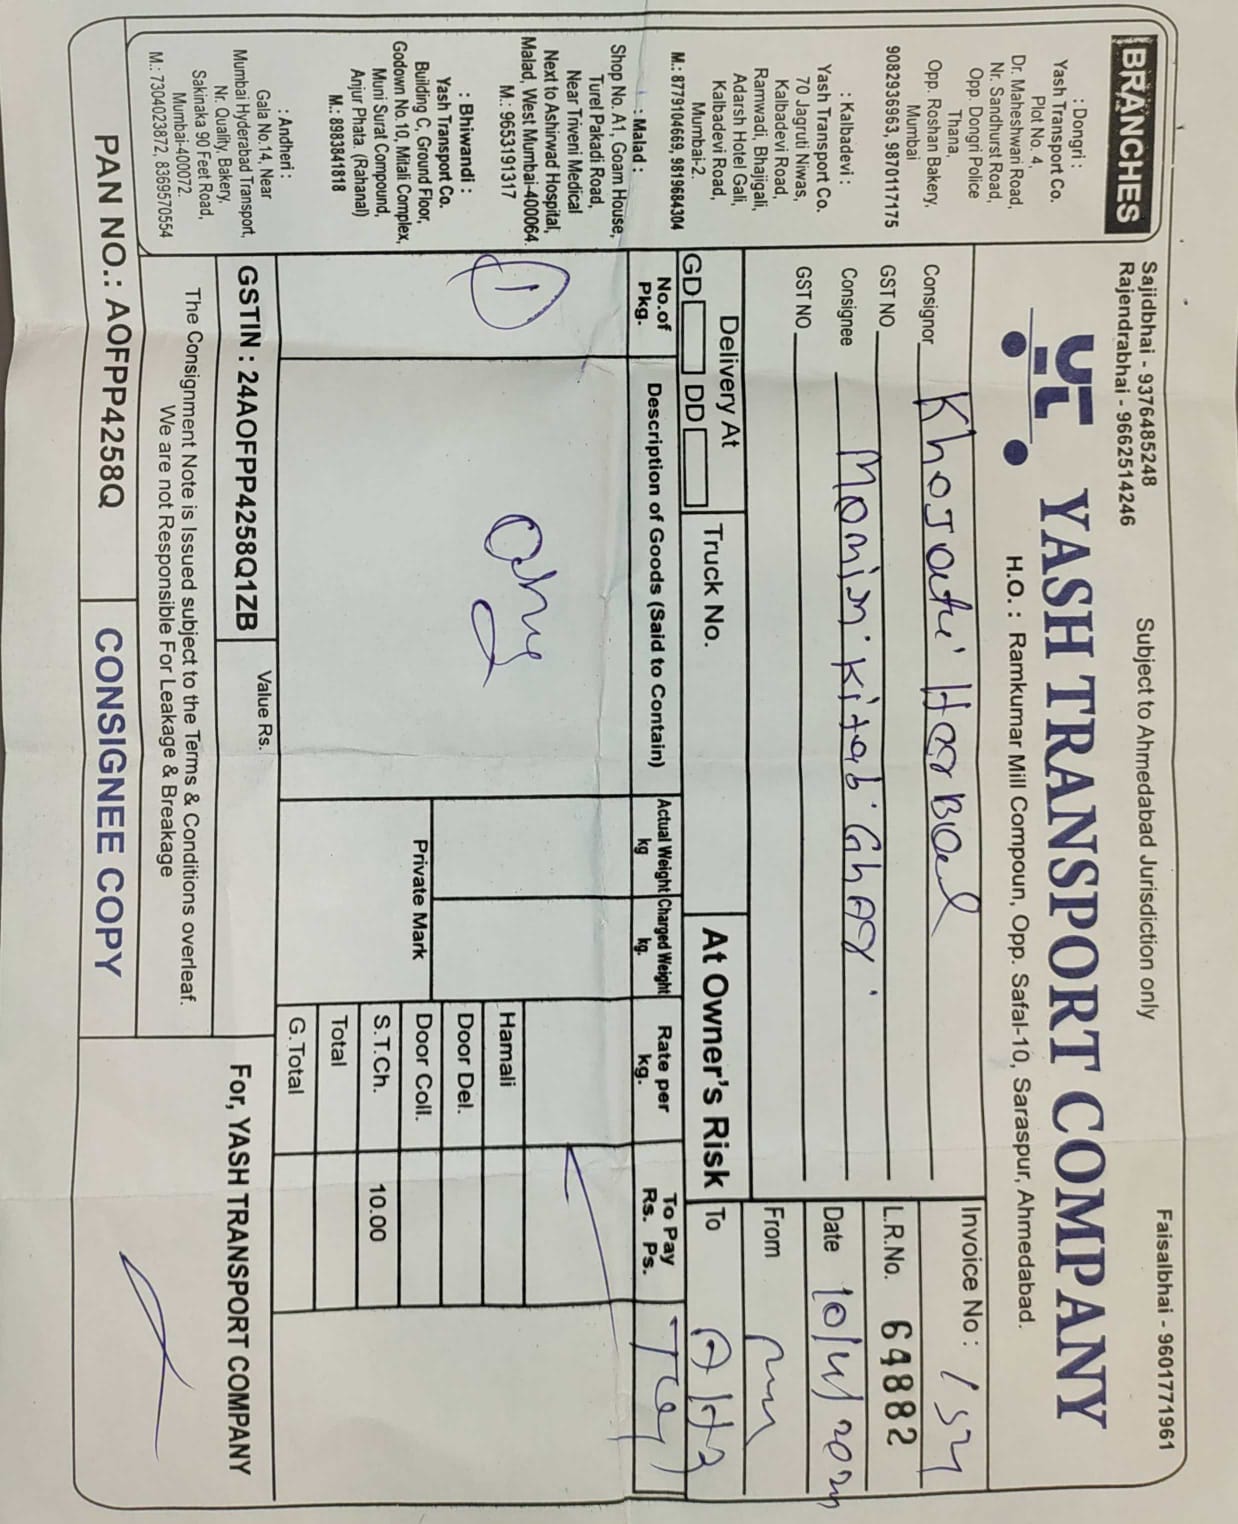 Sajidbhai - 9376485248
Rajendrabhai - 9662514246
Subject to Ahmedabad Jurisdiction only
Faisalbhai - 9601771961
YASH TRANSPORT COMPANY
H.O. : Ramkumar Mill Compoun, Opp. Safal-10, Saraspur, Ahmedabad.
BRANCHES
: Dongri :
Yash Transport Co.
Plot No. 4,
Dr. Maheshwari Road,
Nr. Sandhurst Road,
Opp. Dongri Police
Thana,
Opp. Roshan Bakery,
Mumbai
9082936963, 9870117175
: Kalbadevi :
Yash Transport Co.
70 Jagruti Niwas,
Kalbadevi Road,
Ramwadi, Bhajigali,
Adarsh Hotel Gali,
Kalbadevi Road,
Mumbai-2.
M.: 8779104669, 9819684304
: Malad :
Shop No. A1, Goam House,
Turel Pakadi Road,
Near Triveni Medical
Next to Ashirwad Hospital,
Malad, West Mumbai-400064.
M.: 9653191317
: Bhiwandi :
Yash Transport Co.
Building C, Ground Floor,
Godown No.10, Milali Complex,
Muni Surat Compound,
Anjur Phata. (Rahanal)
M.: 8983841818
: Andheri :
Gala No.14, Near
Mumbai Hyderabad Transport,
Nr. Quality, Bakery,
Sakinaka 90 Feet Road,
Mumbai-400072.
M.: 7304023872, 8369570554
Consignor
GST NO
Consignee Momin Kitab Ghar
GST NO
Invoice No :
L.R.No. 64882
Date
From
To
Delivery At
GD DD
Truck No.
At Owner's Risk
No.of Pkg.
Description of Goods (Said to Contain)
Actual Weight kg
Charged Weight kg.
Rate per kg.
To Pay Rs. Ps.
1
Hamali
Door Del.
Private Mark
Door Coll.
S.T.Ch. 10.00
Total
G.Total
GSTIN : 24AOFPP4258Q1ZB
Value Rs.
The Consignment Note is Issued subject to the Terms & Conditions overleaf.
We are not Responsible For Leakage & Breakage
For, YASH TRANSPORT COMPANY
PAN NO.: AOFPP4258Q
CONSIGNEE COPY